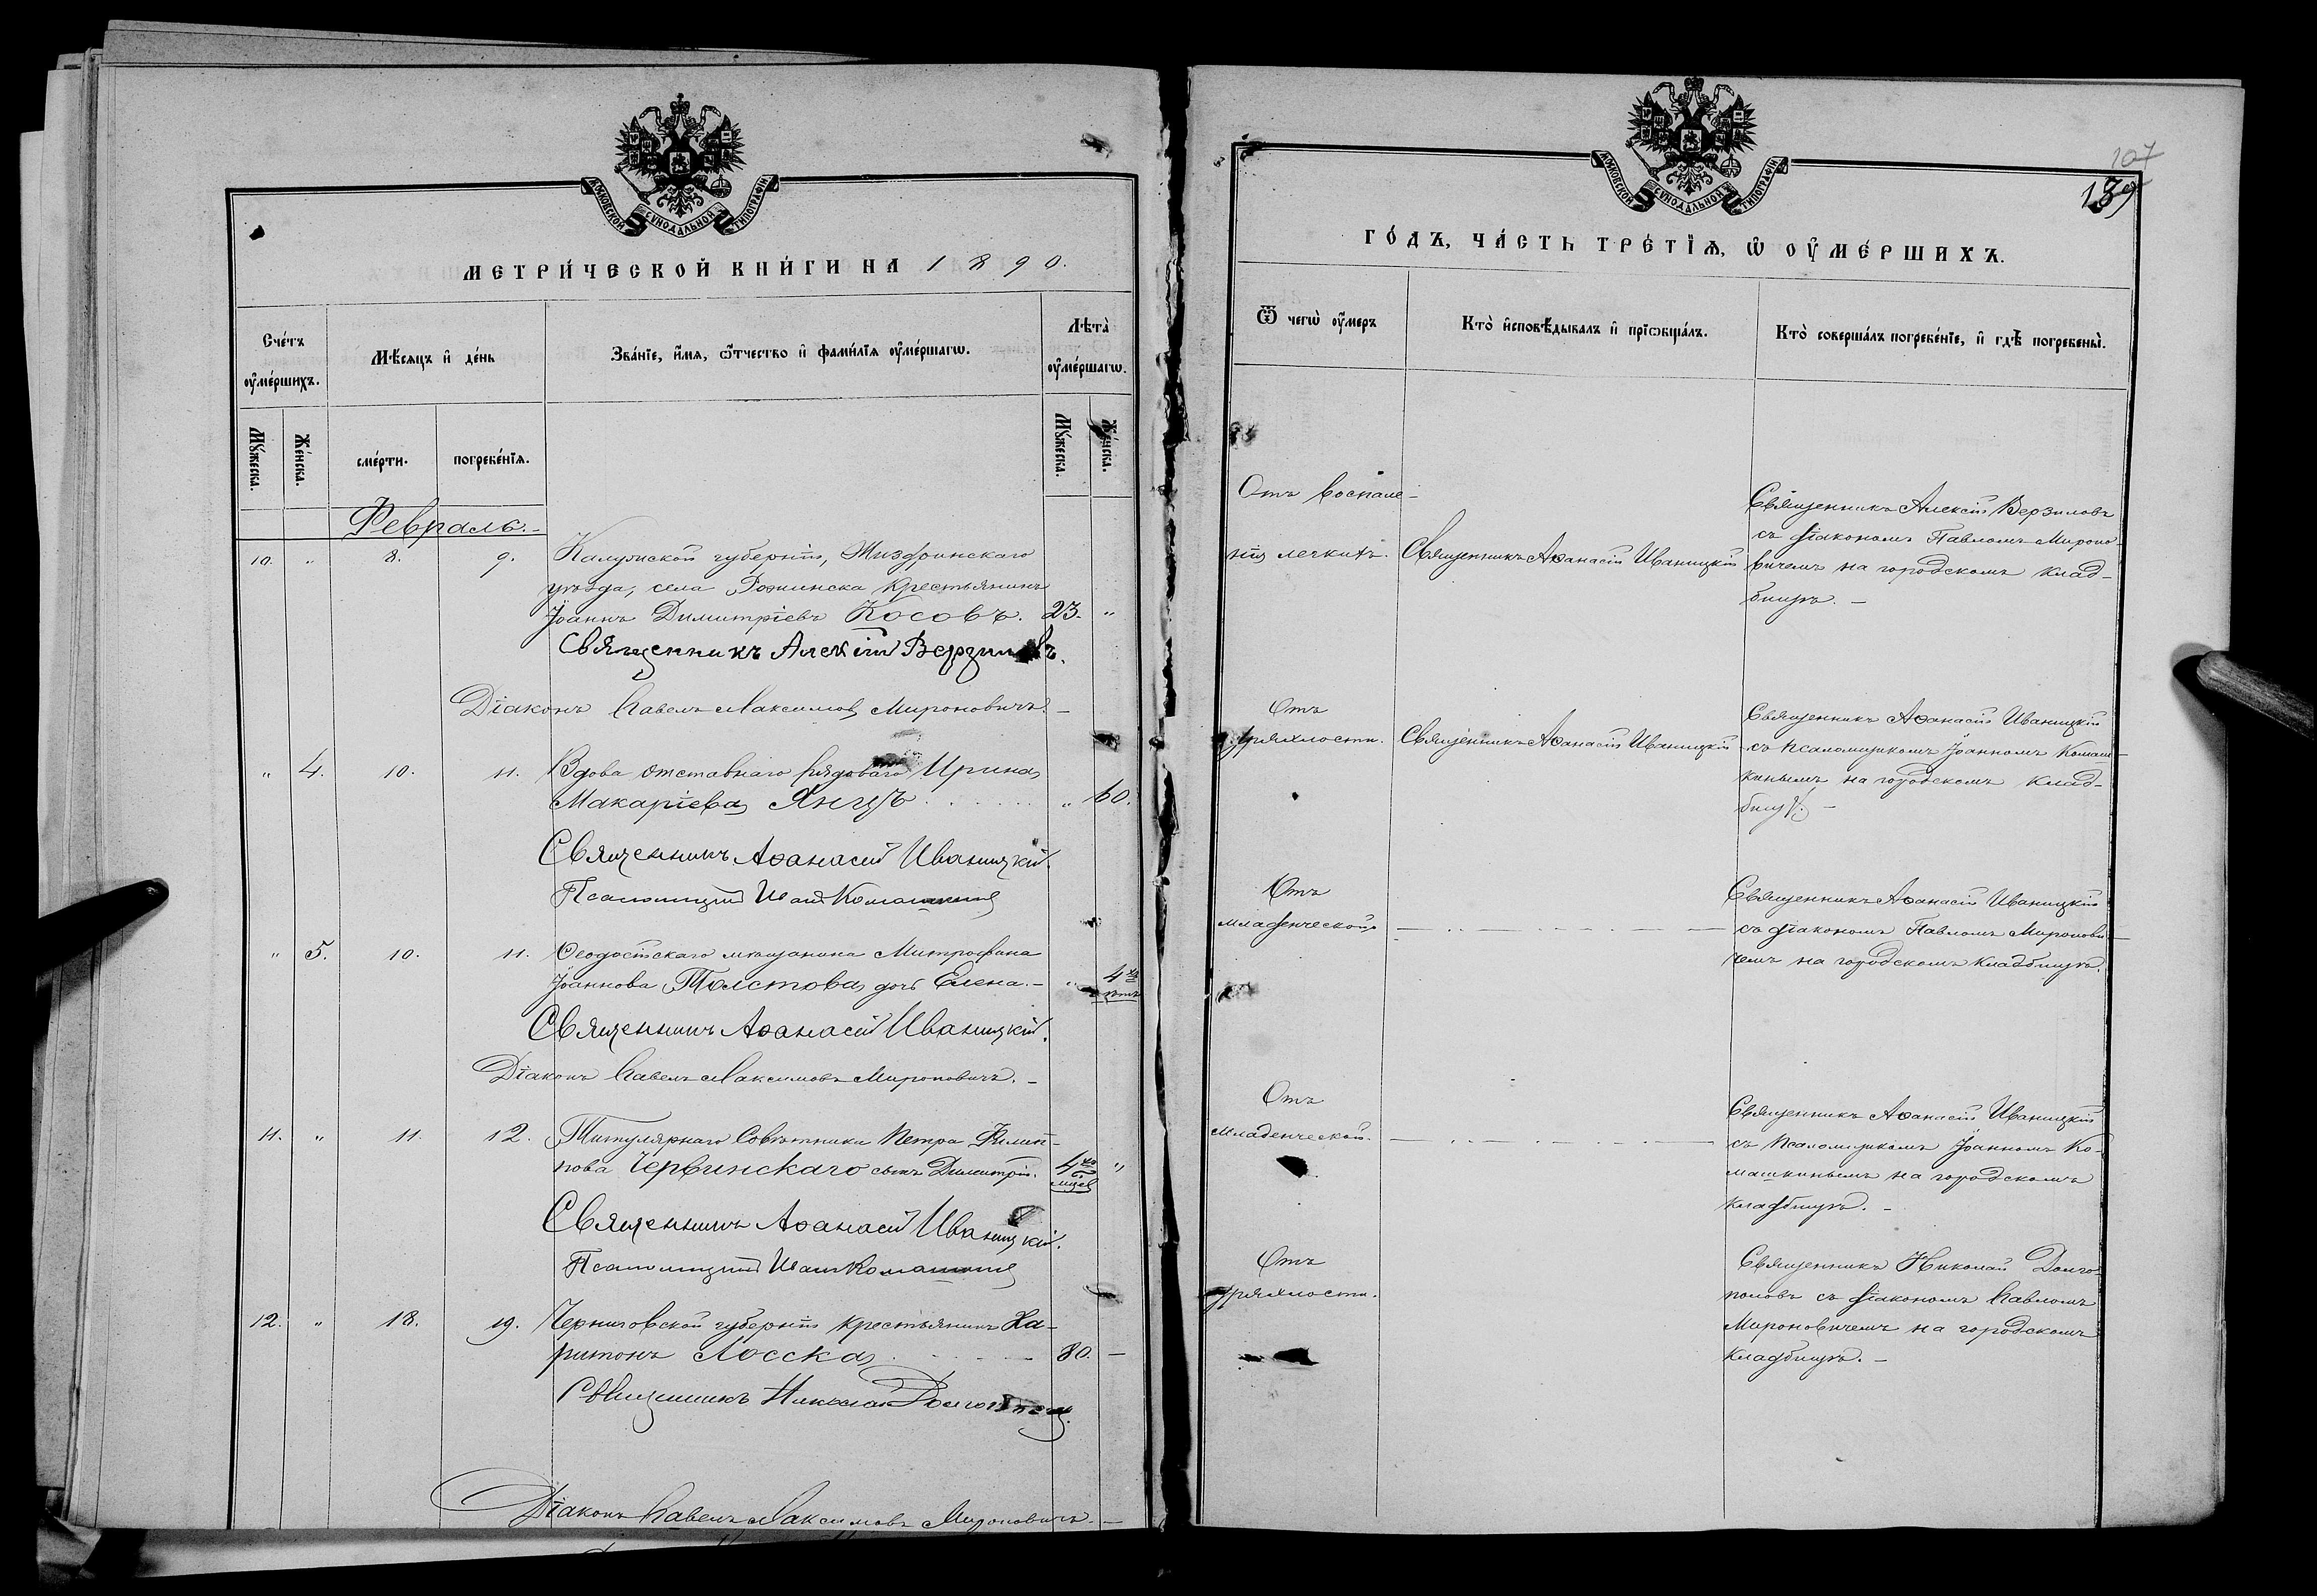 МОСКОВСКОЙ СѴНОДАЛЬНОЙ ТИПОГРАФІИ
МЕТРИ́ЧЕСКОЙ КНИ́ГИ НА 1890.
Сче́тъ ᲂу҆ме́ршихъ.
Мѣ́сяцъ и҆ де́нь
Зва́нїе, и҆́мѧ, ѻ҆́тчество и҆ фами́лїѧ ᲂу҆ме́ршагѡ.
Лѣ́та ᲂу҆ме́ршагѡ.
Мꙋ́жеска.
Же́нска.
сме́рти.
погребе́нїѧ.
Мꙋ́жеска.
Же́нска.
Февраль.-
10. " 8. 9. Калужской губерніи, Жиздринскаго
уѣзда, села крестьянинъ
Іоаннъ Димитріевъ Косовъ. 23. "
Священникъ Алексій Верзиловъ.
Діаконъ Павелъ Максимовъ Мироновичъ.-
" 4. 10. 11. Вдова отставнаго рядоваго Ирина
Макаріева Янцъ . . . . . . " 60.
Священникъ Аѳанасій Иваницкій.
Псаломщикъ Иванъ Комашкинъ
" 5. 10. 11. Ѳеодосійскаго мѣщанина Митрофана
Іоаннова Толстова дочь Елена.- " 4хъ
лѣтъ
Священникъ Аѳанасій Иваницкій.
Діаконъ Павелъ Максимовъ Мироновичъ.-
11. " 11. 12. Титулярнаго Совѣтника Петра Филип-
пова Червинскаго сынъ Димитрій. 4хъ "
мцев
Священникъ Аѳанасій Иваницкій.
Псаломщикъ Иванъ Комашкинъ
12. " 18. 19. Черниговской губерніи крестьянинъ Ха-
ритонъ Лосска . . . . 80. -
Священникъ Николай Долгополовъ.
Діаконъ Павелъ Максимовъ Мироновичъ.-
МОСКОВСКОЙ СѴНОДАЛЬНОЙ ТИПОГРАФІИ
107
139
ГО́ДЪ, ЧА́СТЬ ТРЕ́ТЇѦ, Ѡ҆ ОУ҆МЕ́РШИХЪ.
Ѿ чегѡ̀ ᲂу҆́меръ
Кто̀ и҆сповѣ́дывалъ и҆ прїѡбща́лъ.
Кто̀ соверша́лъ погребе́нїе, и҆ гдѣ̀ погребены̀.
Отъ воспале-
нія легкихъ.
Священникъ Аѳанасій Иваницкій
Священникъ Алексій Верзиловъ
съ діакономъ Павломъ Мироно-
вичемъ на городскомъ клад-
бищѣ.-
Отъ
дряхлости.
Священникъ Аѳанасій Иваницкій
Священникъ Аѳанасій Иваницкій
съ псаломщикомъ Іоанномъ Комаш-
кинымъ на городскомъ клад-
бищѣ.-
Отъ
младенческой
Священникъ Аѳанасій Иваницкій
съ діакономъ Павломъ Миронови-
чемъ на городскомъ кладбищѣ.
Отъ
младенческой.
Священникъ Аѳанасій Иваницкій
съ псаломщикомъ Іоанномъ Ко-
машкинымъ на городскомъ
кладбищѣ.-
Отъ
дряхлости.
Священникъ Николай Долго-
половъ съ діакономъ Павломъ
Мироновичемъ на городскомъ
кладбищѣ.-